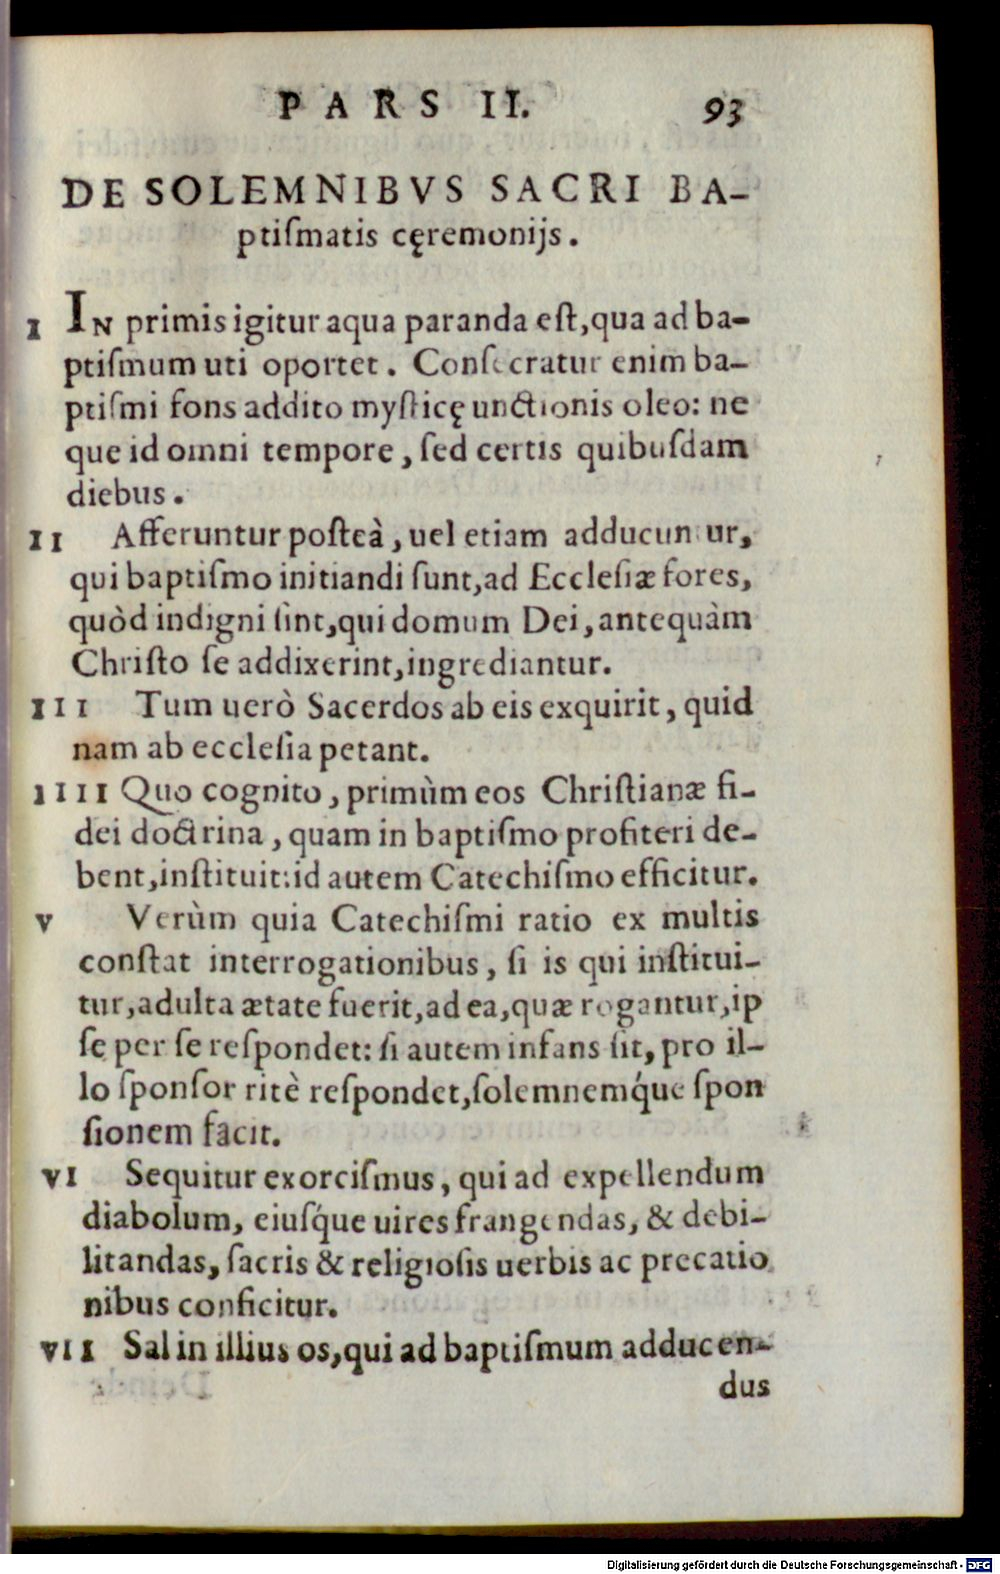 PARS II. 93
DE SOLEMNIBVS SACRI BA-
ptiſmatis cęremonijs.
I IN primis igitur aqua paranda eſt, qua ad ba-
ptiſmum uti oportet. Conſecratur enim ba-
ptiſmi fons addito myſticę unctionis oleo: ne
que id omni tempore, ſed certis quibuſdam
diebus.
II Afferuntur poſteà, uel etiam adducun ur,
qui baptiſmo initiandi ſunt, ad Eccleſiæ fores,
quòd indigni ſint, qui domum Dei, antequàm
Chriſto ſe addixerint, ingrediantur.
III Tum uerò Sacerdos ab eis exquirit, quid
nam ab eccleſia petant.
IIII Quo cognito, primùm eos Chriſtianæ fi-
dei doctrina, quam in baptiſmo profiteri de-
bent, inſtituit: id autem Catechiſmo efficitur.
V Verùm quia Catechiſmi ratio ex multis
conſtat interrogationibus, ſi is qui inſtitui-
tur, adulta ætate fuerit, ad ea, quæ rogantur, ip
ſe per ſe reſpondet: ſi autem infans ſit, pro il-
lo ſponſor ritè reſpondet, ſolemnemq́ue ſpon
ſionem facit.
VI Sequitur exorciſmus, qui ad expellendum
diabolum, eiuſq́ue uires frangendas, & debi-
litandas, ſacris & religioſis uerbis ac precatio
nibus conficitur.
VII Sal in illius os, qui ad baptiſmum adducen-
dus
Digitalisierung gefördert durch die Deutsche Forschungsgemeinschaft - DFG